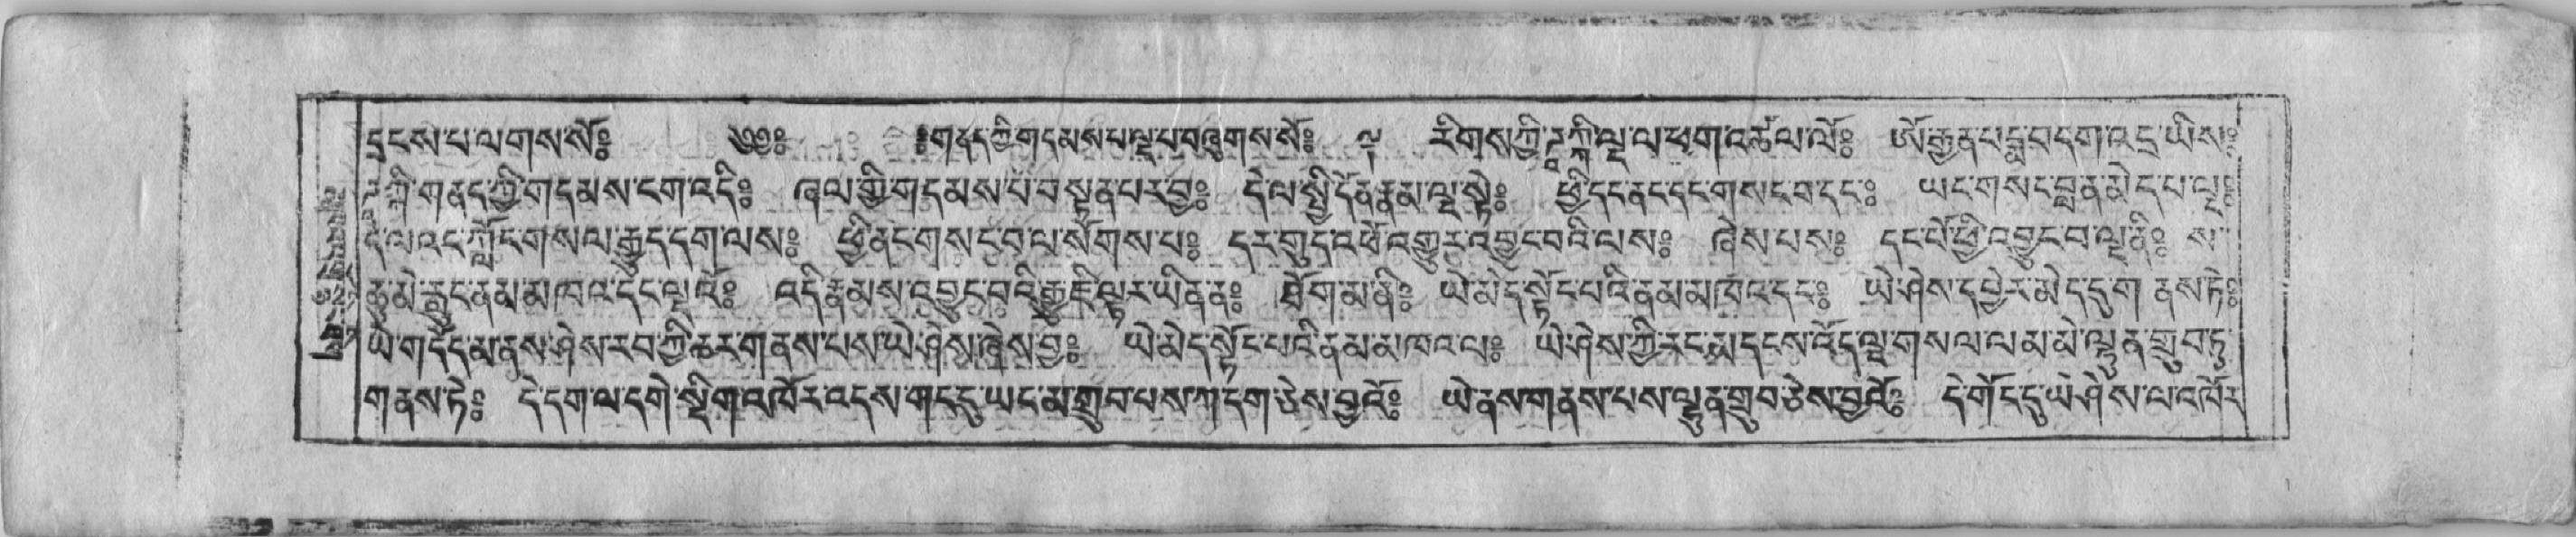 དྲངས་པ་ལགས་སོ༔ ༄༅༔ ༔གནད་ཀྱི་གདམས་པ་ལྔ་པ་བཞུགས་སོ༔ ༈ རིགས་ཀྱི་ཌཱཀྐི་ལྔ་ལ་ཕྱག་འཚལ་ལོ༔ ཨོ་རྒྱན་པདྨ་བདག་འདྲ་ཡིས༔
ཌཱཀྐི་གནད་ཀྱི་གདམས་ངག་འདི༔ ཞལ་གྱི་གདམས་པ་བསྟན་པར་བྱ༔ དེ་ལ་སྤྱི་དོན་རྣམ་ལྔ་སྟེ༔ ཕྱི་དང་ནང་དང་གསང་བ་དང་༔ ཡང་གསང་བླན་མེད་པ་ལྔ༔
དེ་ལ་འང་ཀློང་གསལ་རྒྱུད་དག་ལས༔ ཕྱི་ནང་གསང་བ་ལ་སོགས་པ༔ དར་གུད་འཕོ་འགྱུར་འབྱུང་བའི་ལས༔ ཞེས་པས༔ དང་པོ་ཕྱི་འབྱུང་བ་ལྔ་ནི༔ ས་
ཆུ་མེ་རླུང་ནམ་མཁའ་དང་ལྔའོ༔ འདི་རྣམས་འབྱུང་བའི་རྒྱུ་ཇི་ལྟར་ཡིན་ན༔ ཐོག་མ་ནི༔ ཡེ་མེད་སྟོང་པའི་ནམ་མཁའ་དང་༔ ཡེ་ཤེས་དབྱེར་མེད་དུ་གནས་ཏེ༔
ཡེ་གདོད་མ་ནས་ཤེས་རབ་ཀྱི་ཆར་གནས་པས་ཡེ་ཤེས་ཞེས་བྱ༔ ཡེ་མེད་སྟོང་པའི་ནམ་མཁའ་ལ༔ ཡེ་ཤེས་ཀྱི་རང་མདངས་འོད་ལྔ་གསལ་ལམ་མེ་ལྷུན་གྲུབ་ཏུ་
གནས་ཏེ༔ དེ་དག་ལ་དགེ་སྡིག་འཁོར་འདས་གང་དུ་ཡང་མ་གྲུབ་པས་ཀ་དག་ཅེས་བྱའོ༔ ཡེ་ནས་གནས་པས་ལྷུན་གྲུབ་ཅེས་བྱའོ༔ དེ་གོང་དུ་ཡེ་ཤེས་ལ་འཁོར་